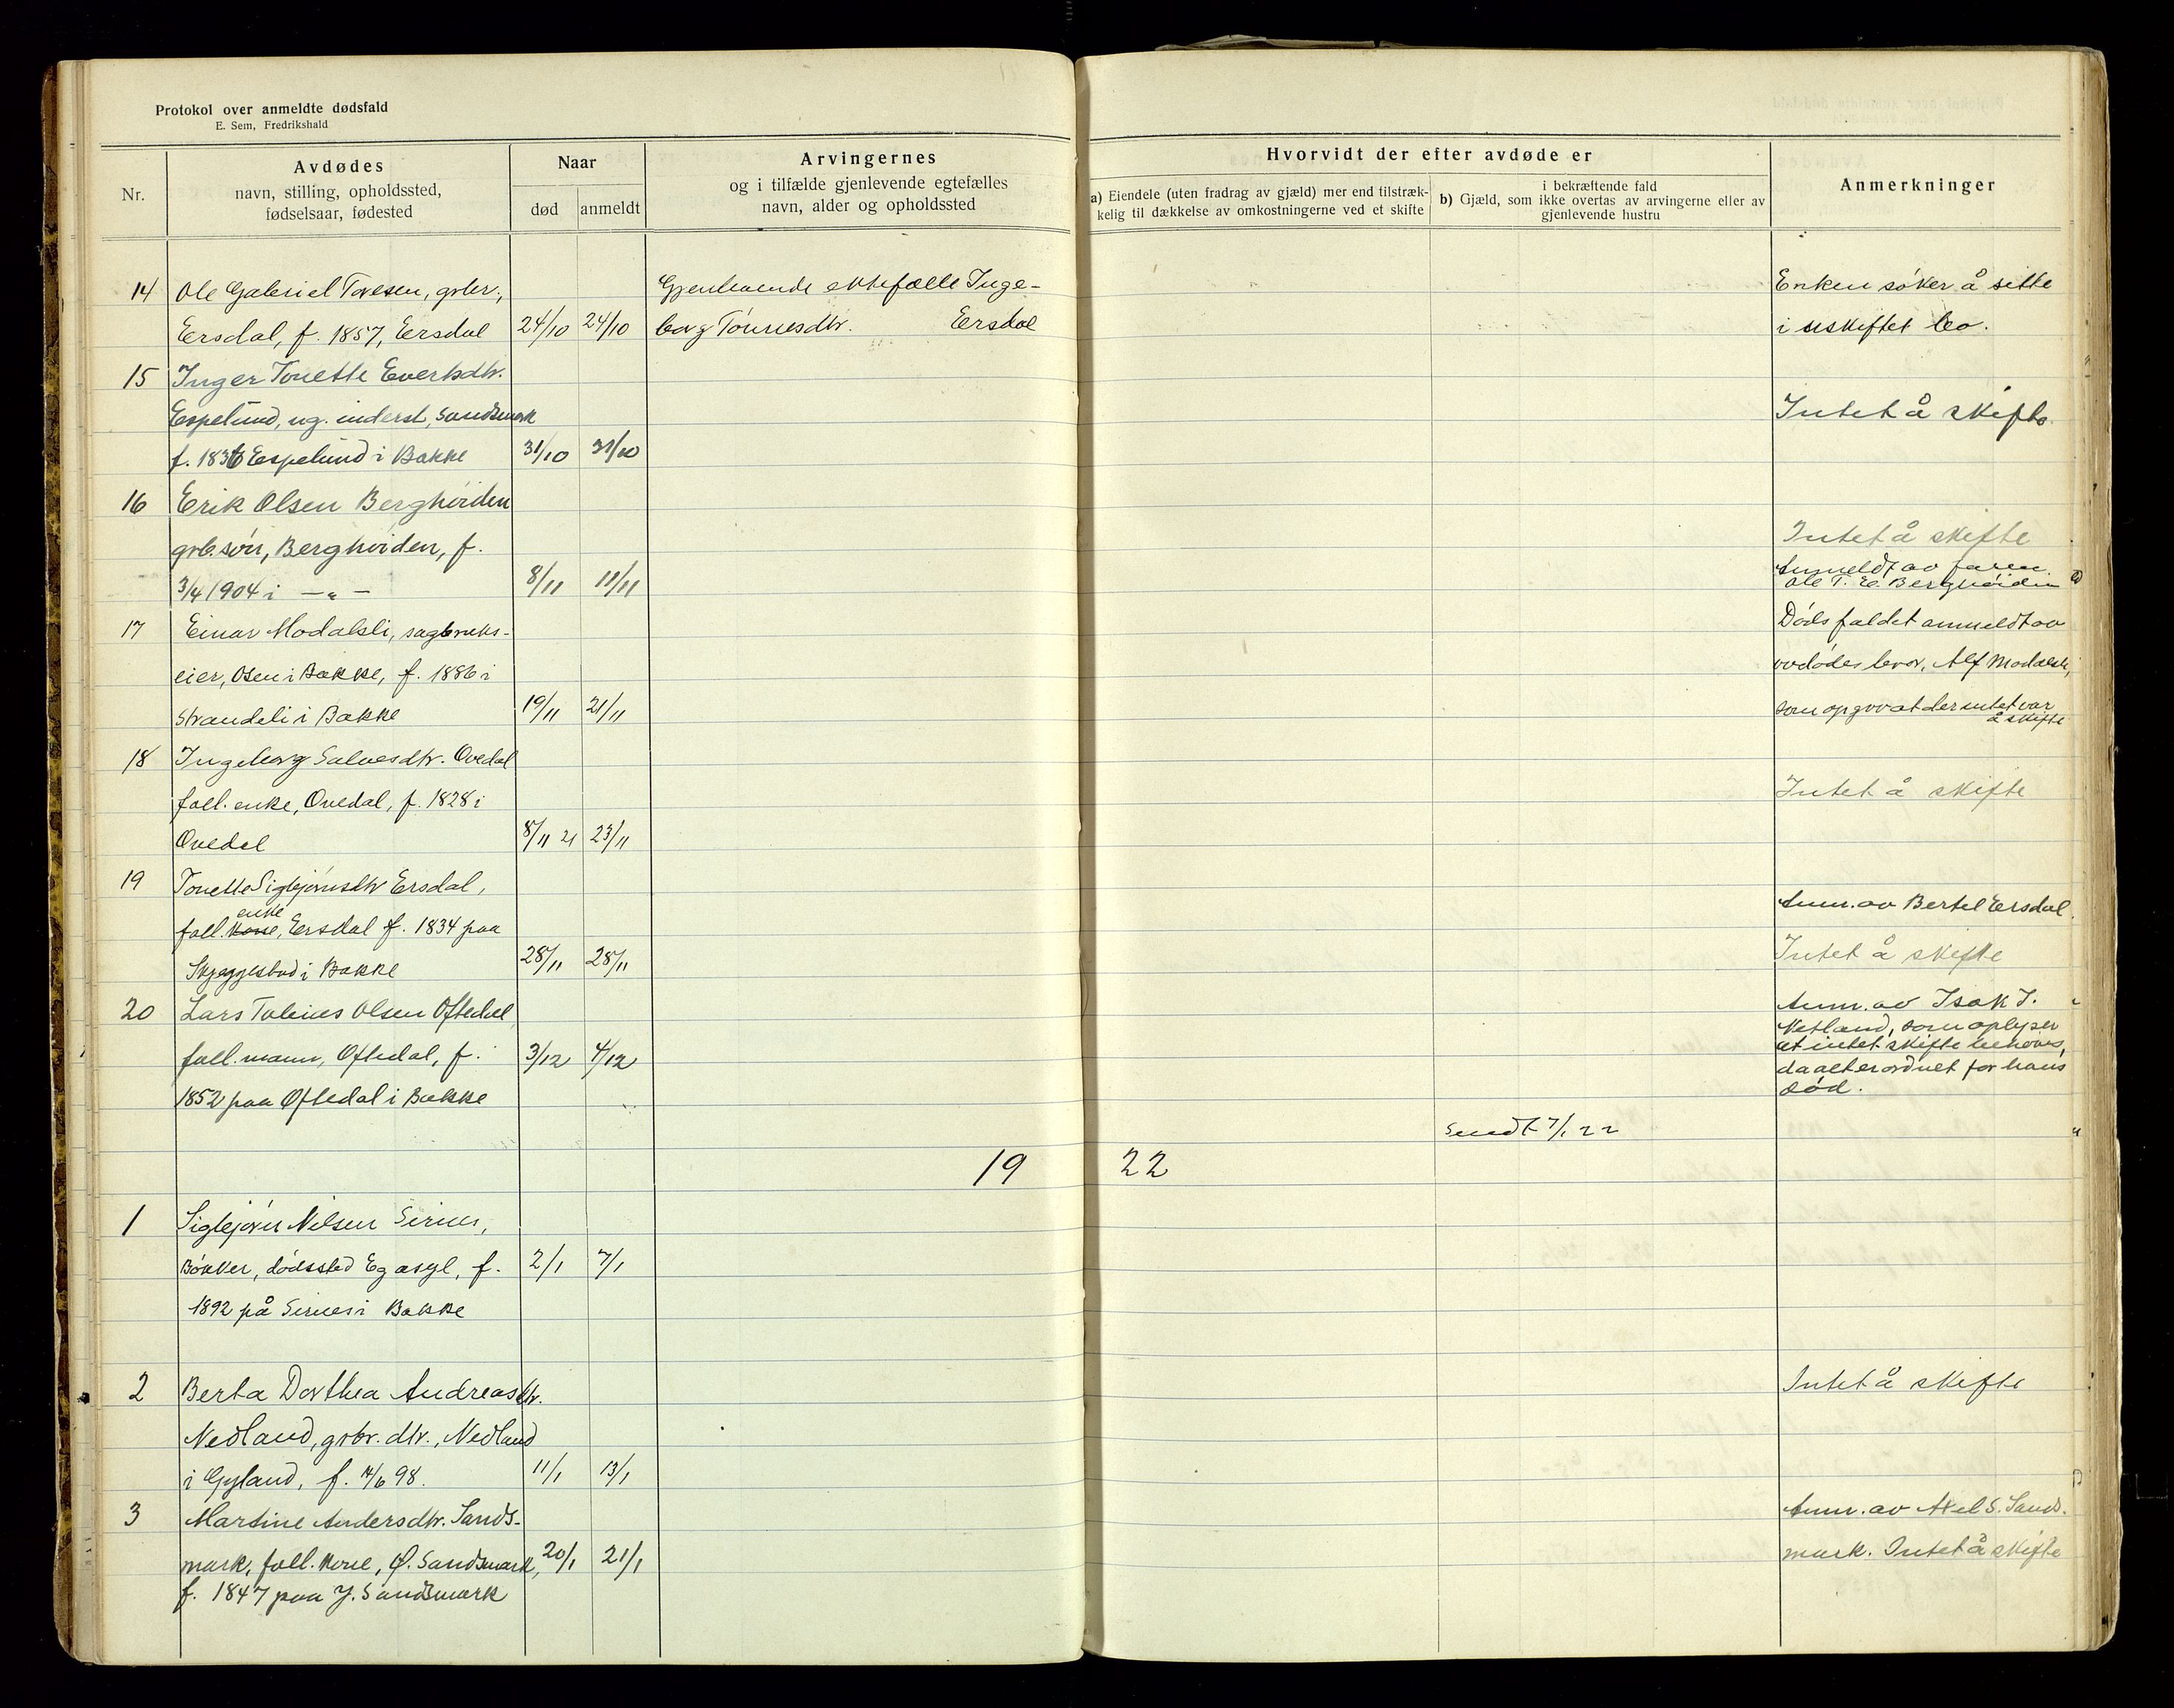 Protokol over anmeldte dødsfald
E. Sem, Fredrikshald
Nr.
Avdødes
navn, stilling, opholdssted,
fødselsaar, fødested
Naar
død
anmeldt
Arvingernes
og i tilfælde gjenlevende egtefælles
navn, alder og opholdssted
Hvorvidt der efter avdøde er
a) Eiendele (uten fradrag av gjæld) mer end tilstræk-
kelig til dækkelse av omkostningerne ved et skifte
i bekræftende fald
b) Gjæld, som ikke overtas av arvingerne eller av
gjenlevende hustru
Anmerkninger
14 Ole Gabriel Toresen, grbr.,
Eersdal, f. 1857, Eersdal 24/10 24/10
Gjenlevende ektefælle Inge-
borg Tønnesdtr. Eersdal
Enken søker å sitte
i uskiftet bo.
15 Inger Tonette Evertsdtr.
Espelund, ug. inderst, Sandsmark
f. 1836 Espelund i Bakke 31/10 31/10
Intet å skifte
16 Erik Olsen Berghøiden
grb.søn, Berghøiden, f.
3/4 1904 i — „ — 8/11 11/11
Intet å skifte
Anmeldt av faren
Ole T. E. Berghøiden
17 Einar Modalsli, sagbruks-
eier, Osen i Bakke, f. 1886 i
Strandeli i Bakke 19/11 21/11
Dødsfaldet anmeldt av
avdødes bror, Alf Modalsli,
som opgav at der intet var
å skifte
18 Ingeborg Salvesdtr. Ovedal
foll. enke, Ovedal, f. 1828 i
Ovedal 8/11 21 23/11
Intet å skifte
19 Tonette Sigbjørnsdtr Ersdal,
enke
foll. kone, Ersdal f. 1834 paa
Skjeggestad i Bakke 28/11 28/11
Anm. av Bertel Ersdal.
Intet å skifte
20 Lars Tobias Olsen Oftedal
foll. mann, Oftedal, f. 3/12 4/12
1852 paa Oftedal i Bakke
Anm. av Isak J.
Netland, som oplyser
at intet skifte behøves,
da alt er ordnet før hans
død.
Sendt 7/1 22
19 22
1 Sigbjørn Nilsen Sirnes,
Bøkker, dødssted Eg asyl, f. 2/1 7/1
1892 på Sirnes i Bakke
2 Berta Dorthea Andreasdtr.
Nedland, grbr. dtr., Nedland
i Gyland, f. 14/6 98. 11/1 13/1
Intet å skifte
3 Martine Andersdtr. Sands-
mark, foll. kone, Ø. Sandsmark, 20/1 21/1
f. 1847 paa Y. Sandsmark
Anm. av Axel S. Sands-
mark. Intet å skifte